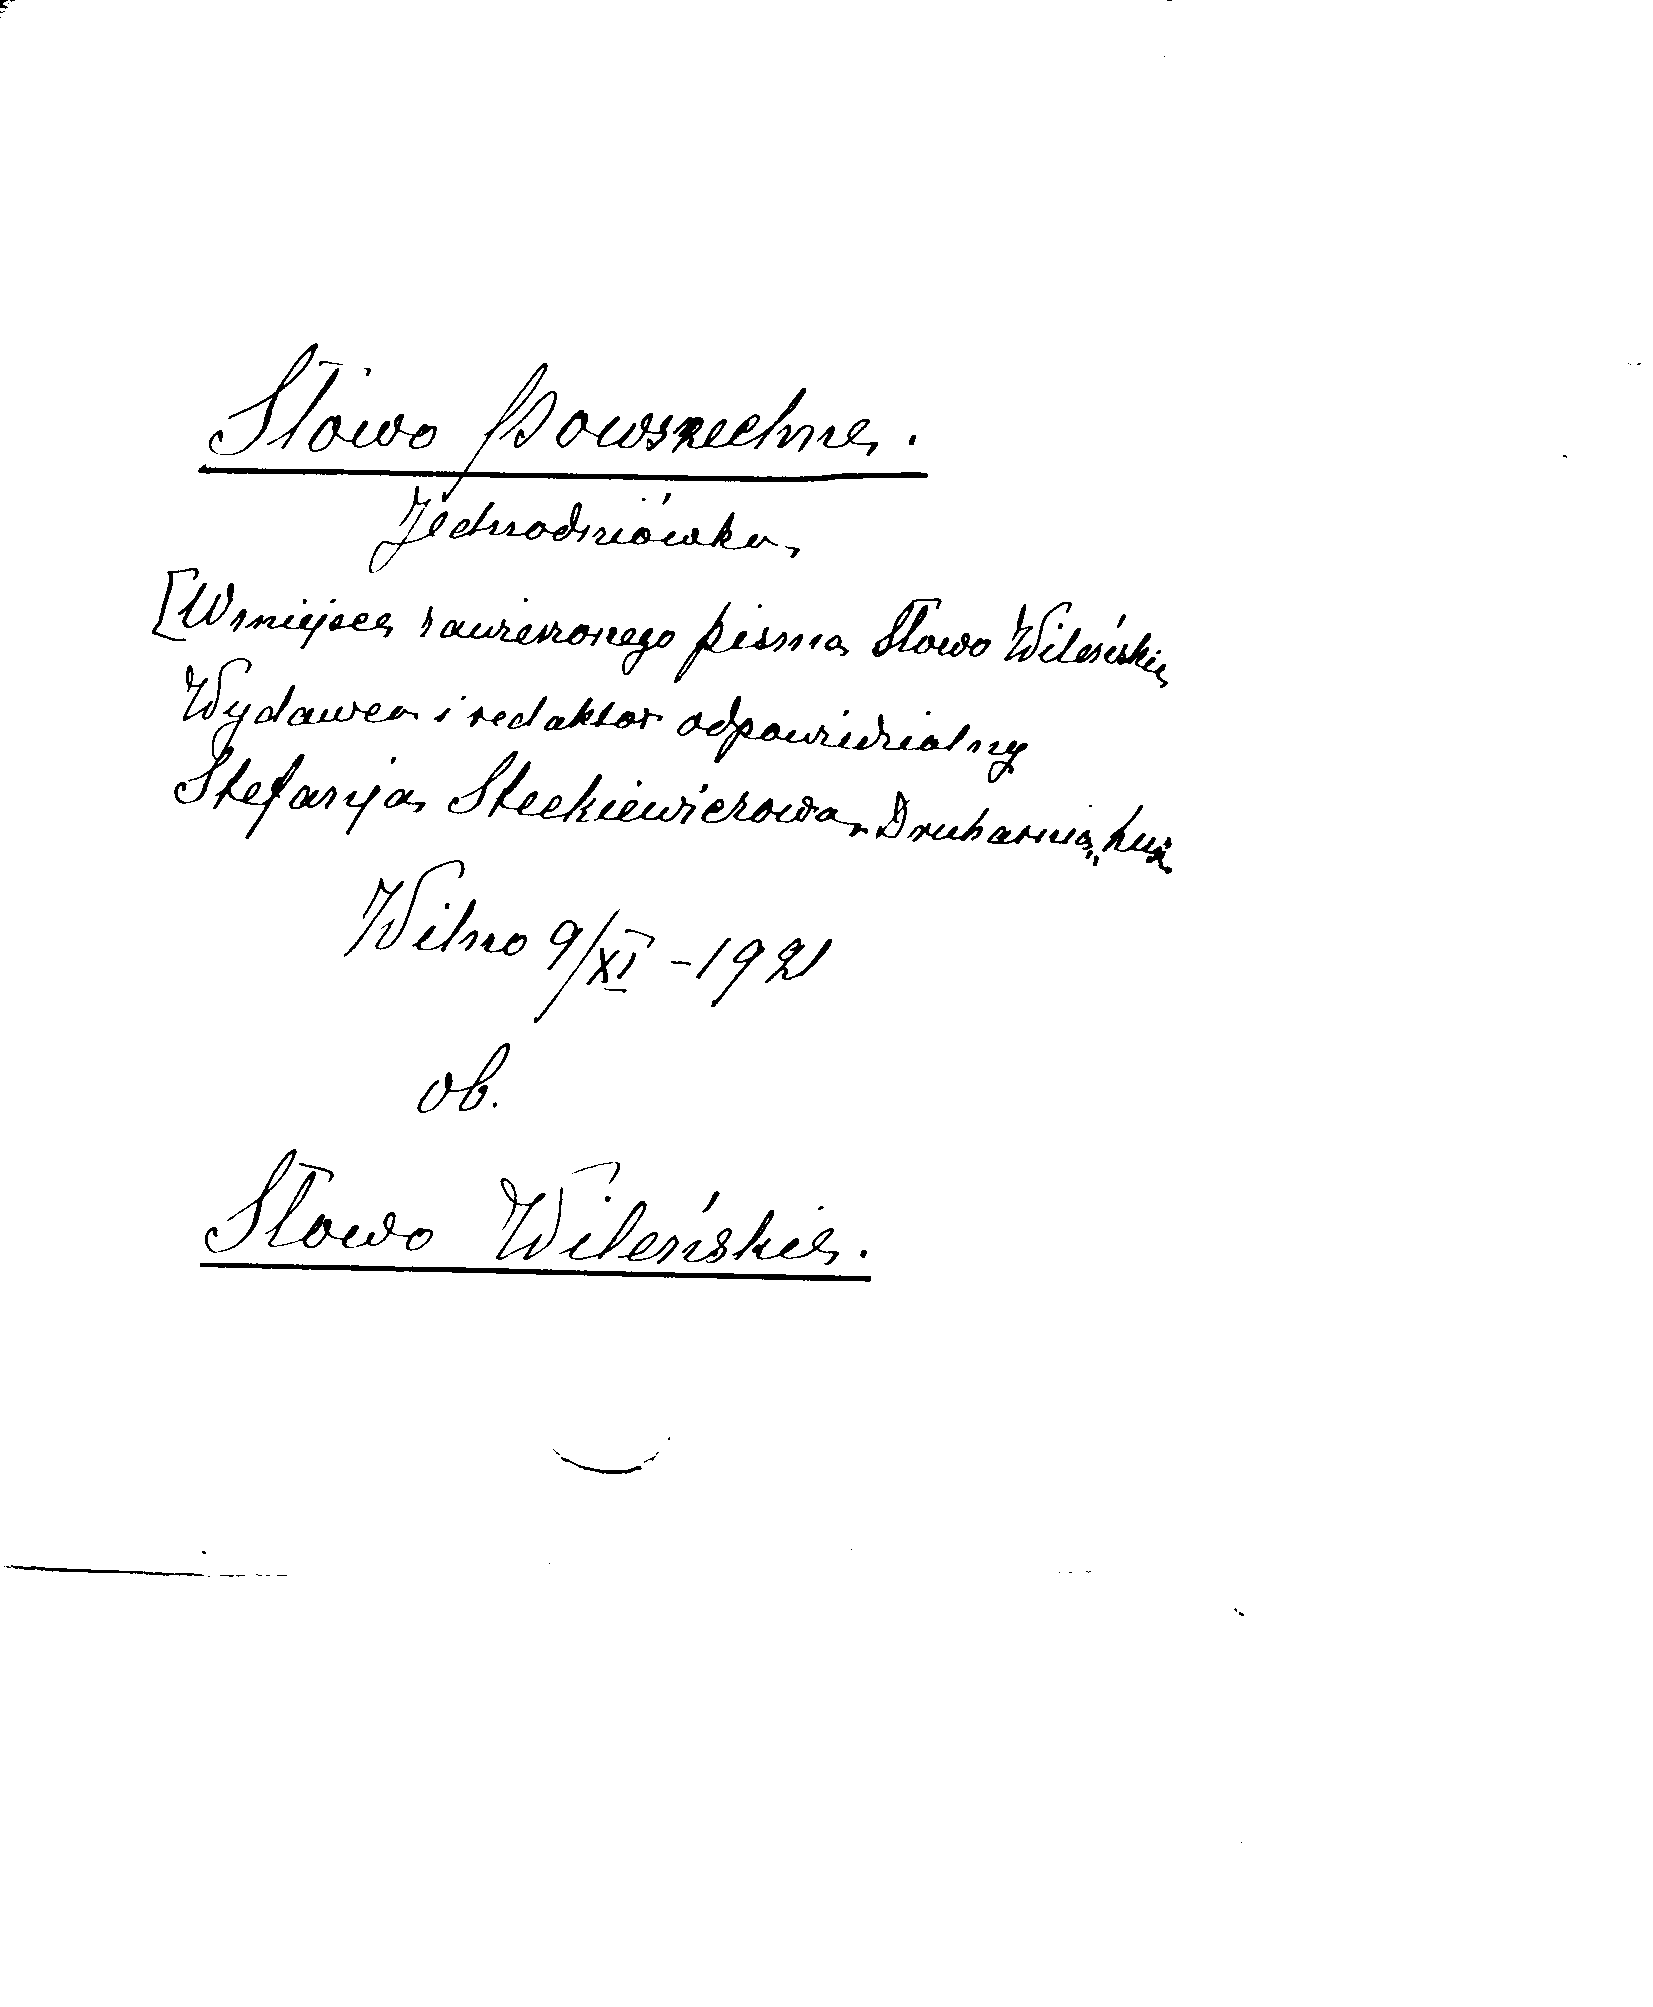 Słowo Powszechne.
Jednodniówka
[W miejsce zawieszonego pisma Słowo Wileńskie
Wydawca i redaktor odpowiedzialny
Stefanja Steckiewiczowa. Drukarnia „Lux
Wilno 9/XI - 1921
ob.
Słowo Wileńskie.